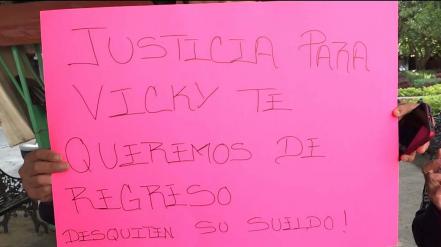 JUSTICIA PARA
VICKY TE
QUEREMOS DE
REGRESO
DESQUITEN SU SUELDO!